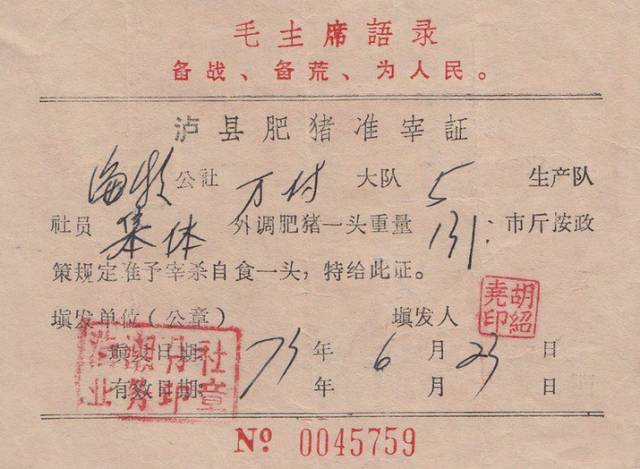 毛主席語录
备战、备荒、为人民。
泸县肥猪准宰証
海潮公社 万村大队 5 生产队
社员 集体 外调肥猪一头重量 131 市斤按政
策规定准予宰杀自食一头，特给此证。
填发单位(公章) 填发人
胡紹尭印
填发日期 75年 6月 23日
有效日期 年 月 日
业务印章
№ 0045759